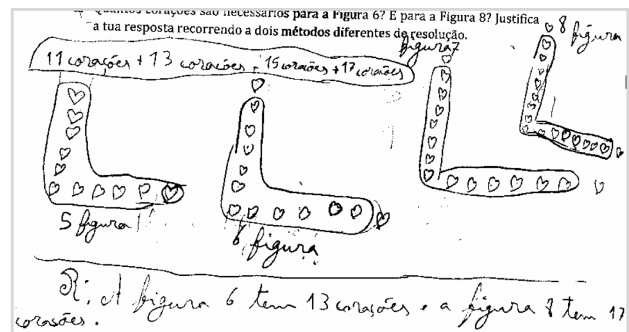 Quantos corações são necessários para a Figura 6? E para a Figura 8? Justifica
a tua resposta recorrendo a dois métodos diferentes de resolução.
8 figura
figura 7
11 corações + 13 corações + 15 corações + 17 corações
5 figura
6 figura
R: A figura 6 tem 13 corações e a figura 8 tem 17
corações.